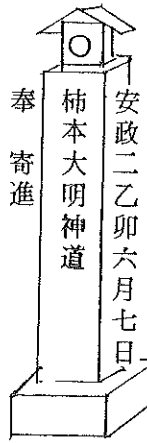 安政二乙卯六月七日
柿本大明神道
奉寄進